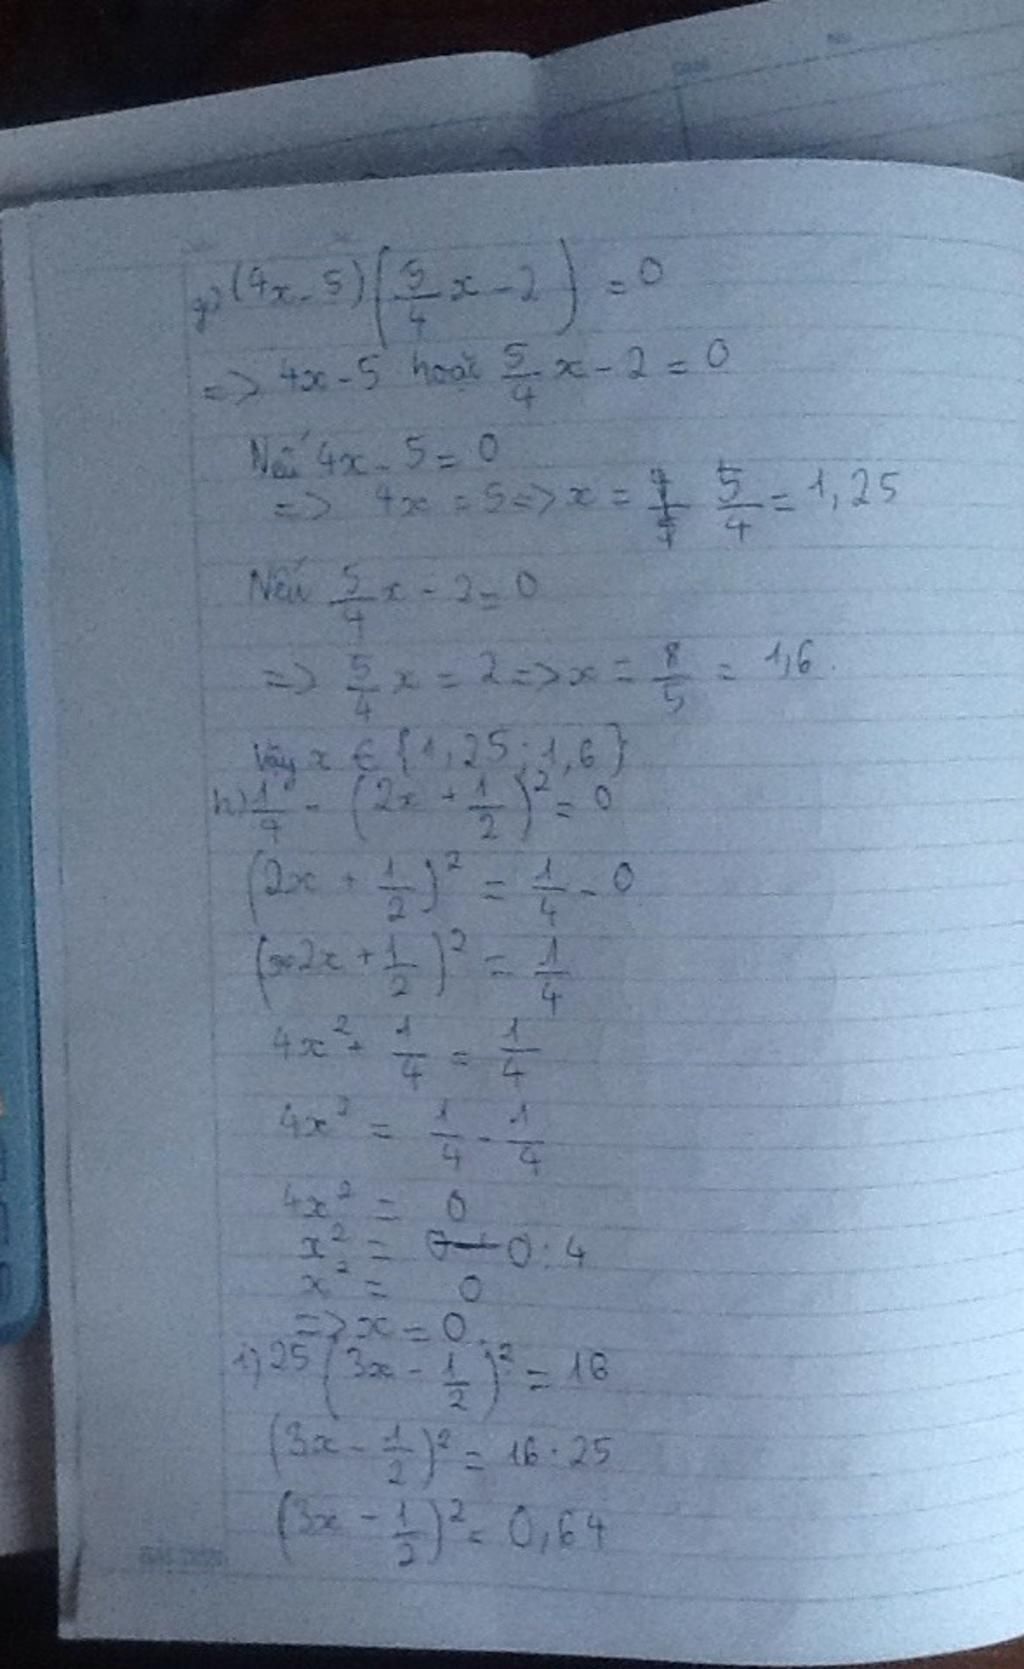 g) (4x - 5)(5/4 x - 2) = 0
=> 4x - 5 hoặc 5/4 x - 2 = 0
Nếu 4x - 5 = 0
=> 4x = 5 => x = 5/4 = 1,25
Nếu 5/4 x - 2 = 0
=> 5/4 x = 2 => x = 8/5 = 1,6.
Vậy x ∈ {1,25; 1,6}
h) 1/4 - (2x + 1/2)² = 0
(2x + 1/2)² = 1/4 - 0
(2x + 1/2)² = 1/4
4x² + 1/4 = 1/4
4x² = 1/4 - 1/4
4x² = 0
x² = 0 : 4
x² = 0
=> x = 0.
i) 25(3x - 1/2)² = 16
(3x - 1/2)² = 16 : 25
(3x - 1/2)² = 0,64